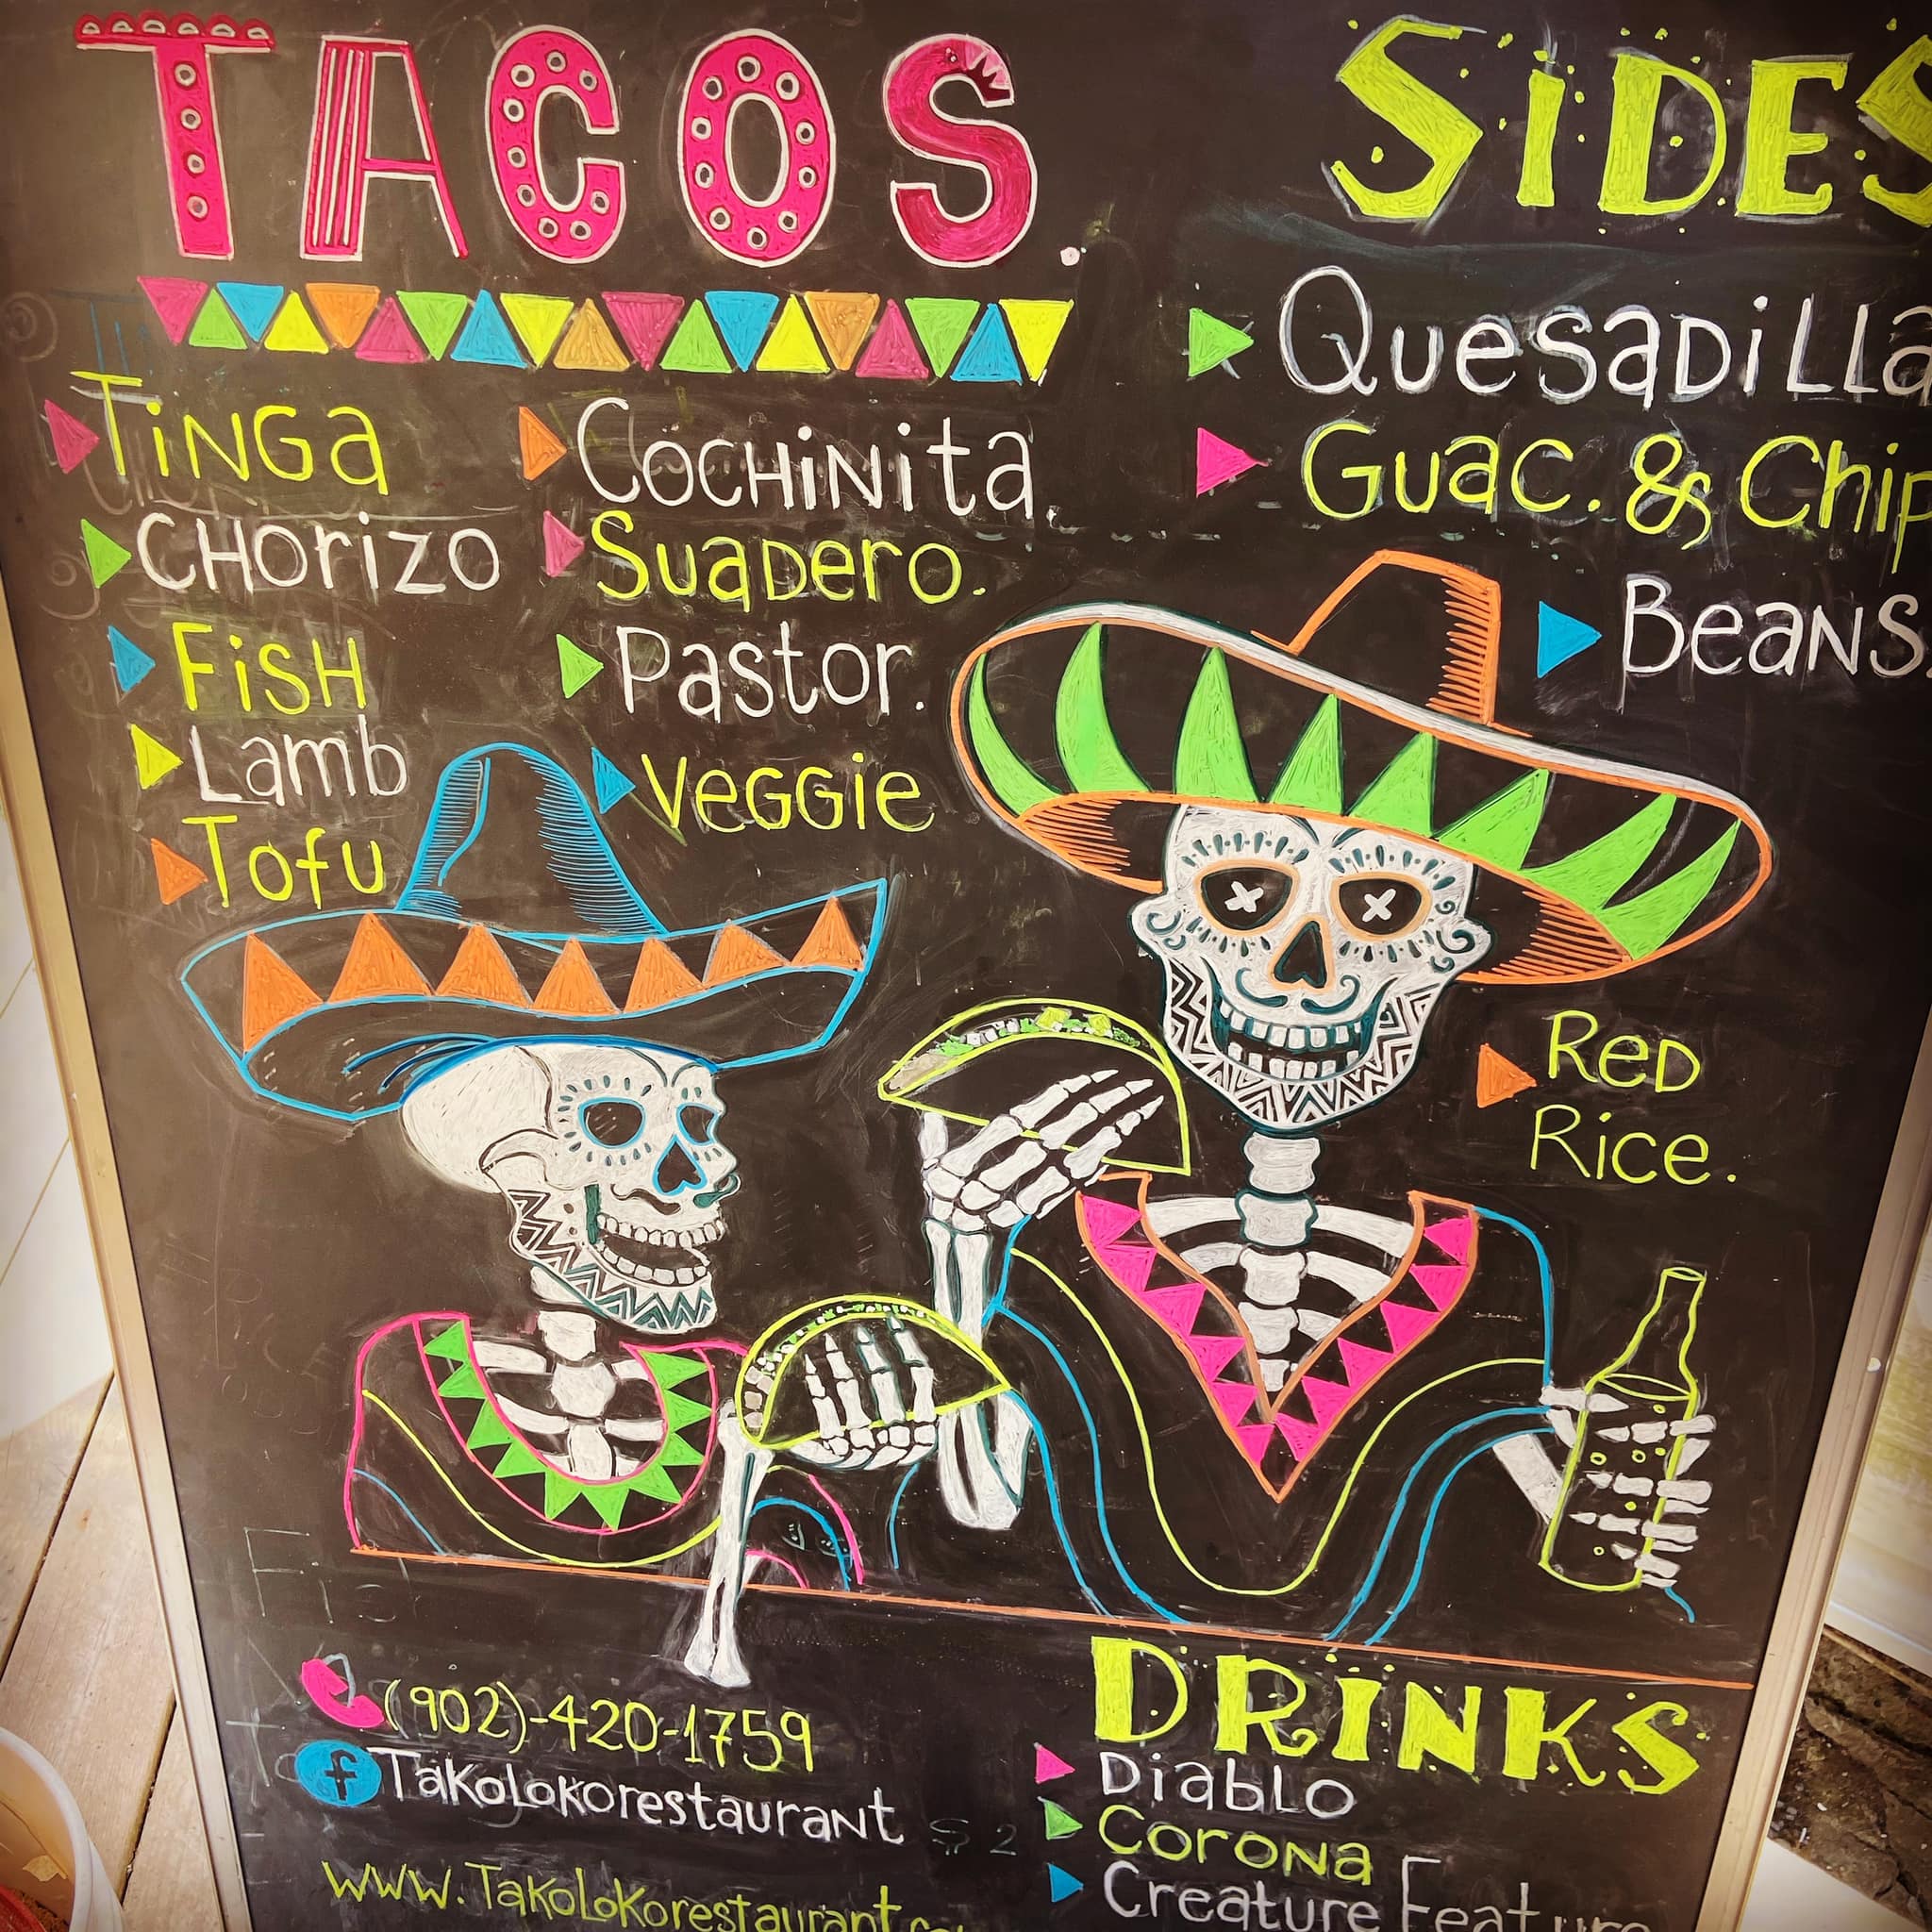 TACOS.
Tinga
Chorizo
Fish
Lamb
Tofu
Cochinita.
Suadero.
Pastor.
Veggie
SiDES
Quesadilla
Guac. & Chip
Beans.
Red
Rice.
(902)-420-1759
f Takolokorestaurant
www.Takolokorestaurant.co
DRINKS
Diablo
Corona
Creature Feature